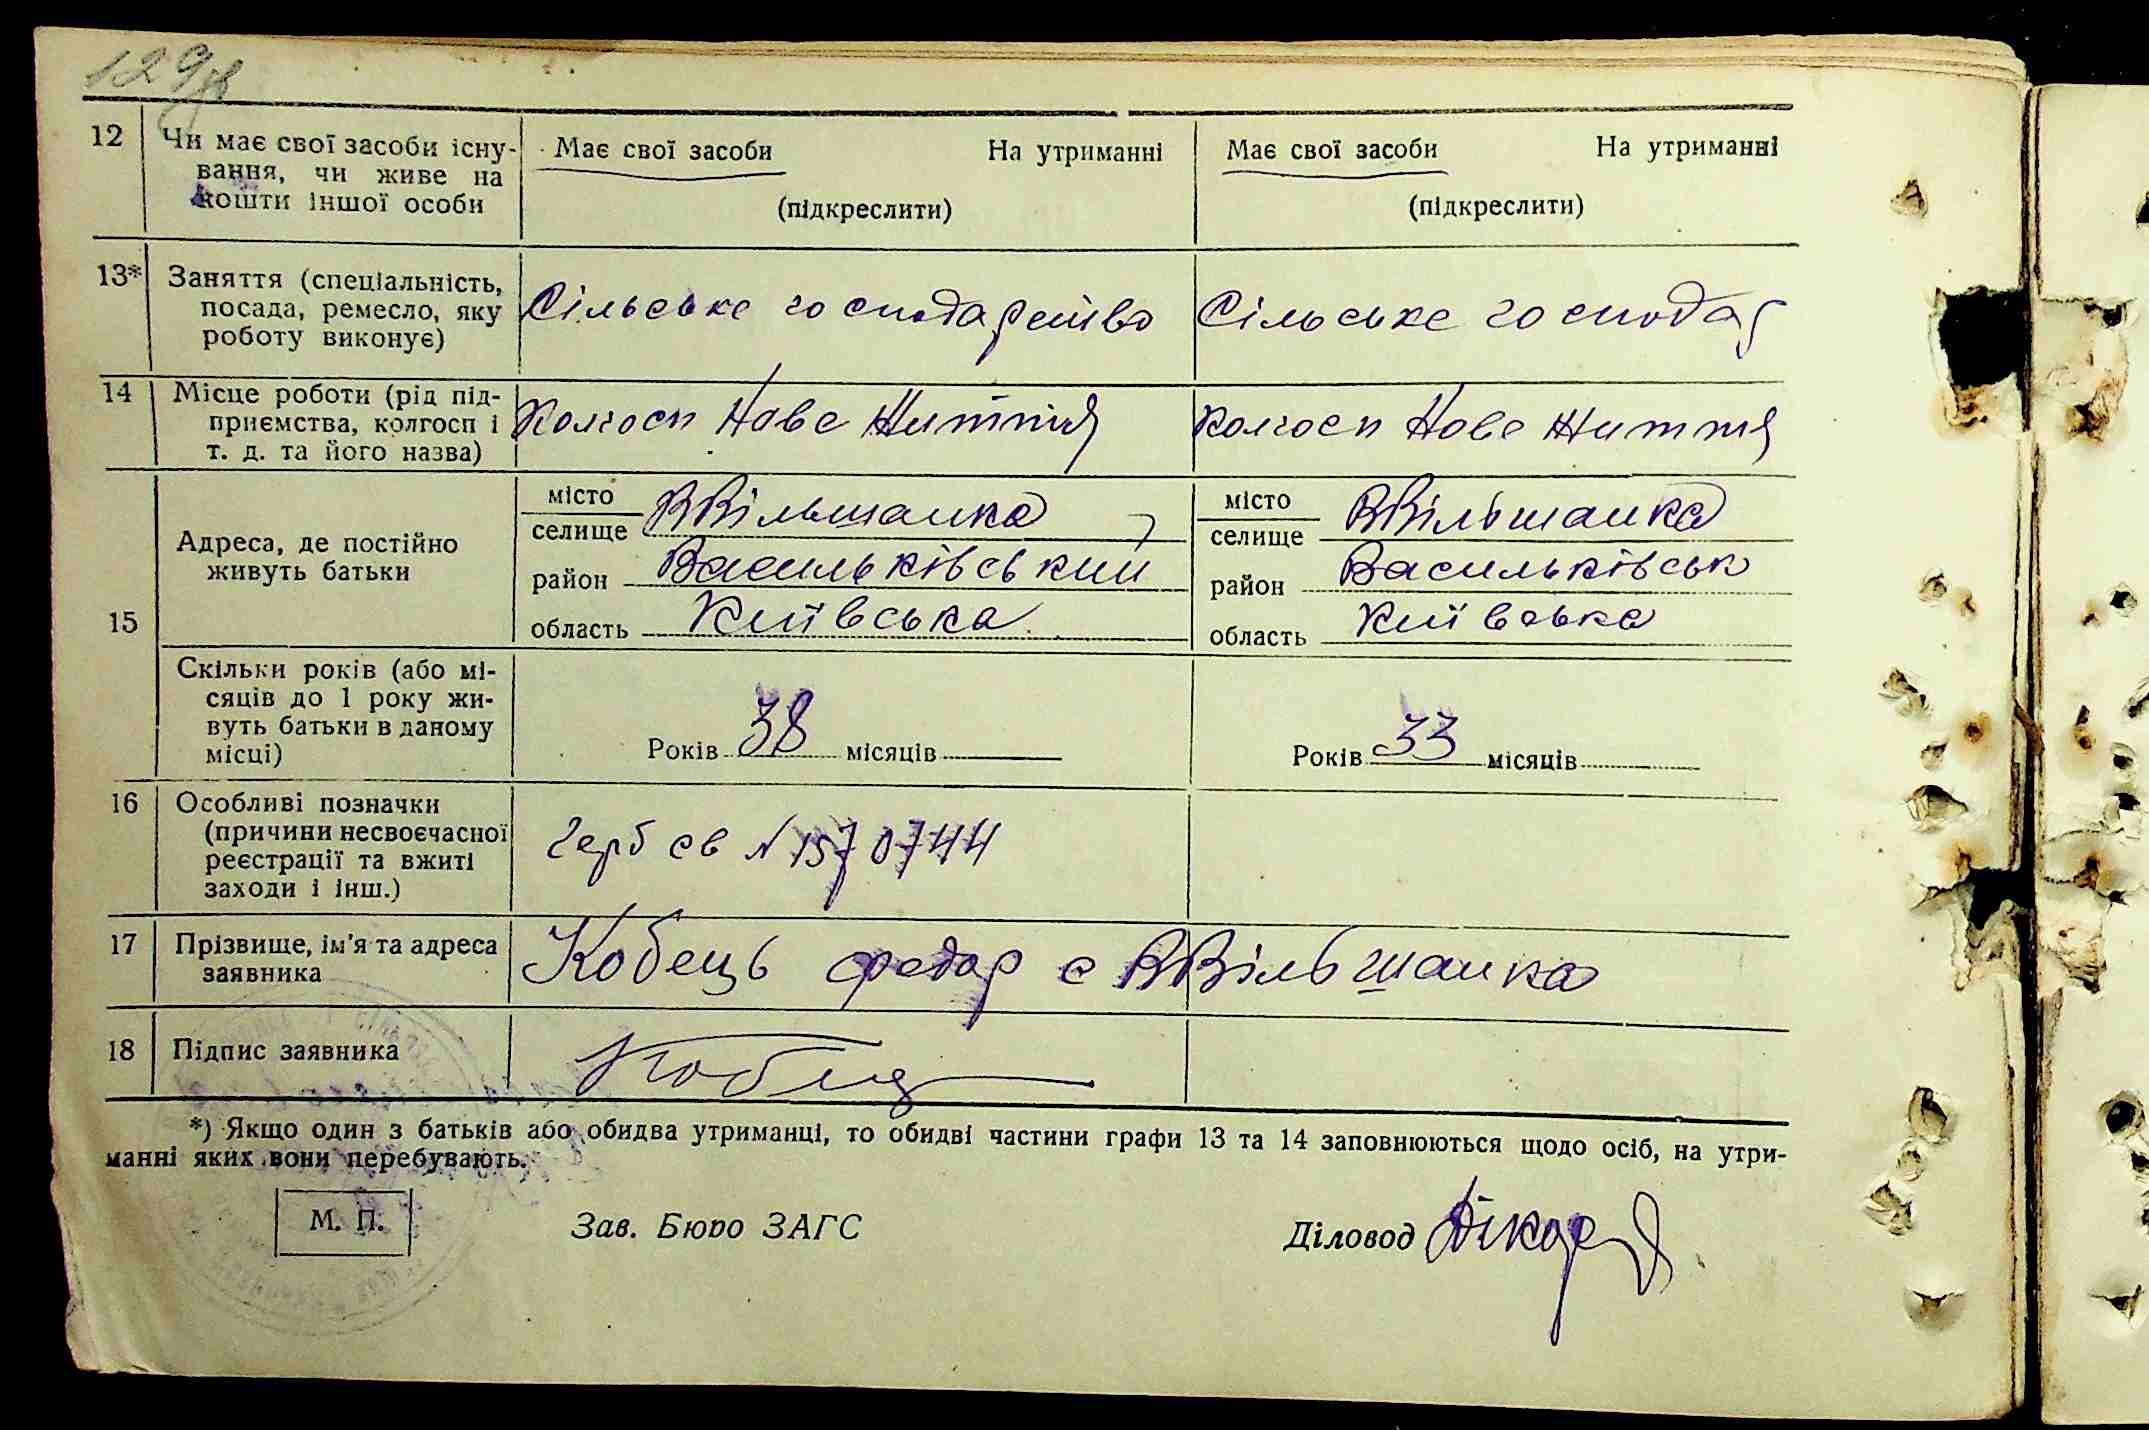 129
12 Чи має свої засоби існу- Має свої засоби На утриманні Має свої засоби На утриманні
вання, чи живе на
кошти іншої особи (підкреслити) (підкреслити)
13* Заняття (спеціальність,
посада, ремесло, яку Сільське господарство Сільське господар
роботу виконує)
14 Місце роботи (рід під-
приємства, колгосп і Колгосп Нове Життя Колгосп Нове Життя
т. д. та його назва)
15 Адреса, де постійно
живуть батьки
місто
селище ВВільшанка
район Васильківський
область Київська
місто
селище ВВільшанка
район Васильківськ
область Київська
Скільки років (або мі-
сяців до 1 року жи-
вуть батьки в даному
місці)
Років 38 місяців
Років 33 місяців
16 Особливі позначки
(причини несвоєчасної
реєстрації та вжиті
заходи і інш.)
Герб св № 1570744
17 Прізвище, ім'я та адреса
заявника
Кобець Федор с ВВільшанка
18 Підпис заявника Кобец
*) Якщо один з батьків або обидва утриманці, то обидві частини графи 13 та 14 заповнюються щодо осіб, на утри-
манні яких вони перебувають.
М. П. Зав. Бюро ЗАГС Діловод